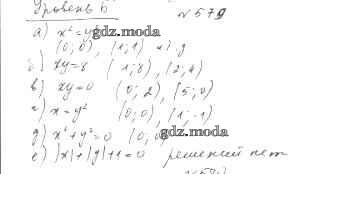 Уровень Б № 579
а) x² = y gdz.moda
(0; 0), (1; 1) и т.д
б) xy = 8 (1; 8), (2; 4)
в) xy = 0 (0; 2), (5; 0)
г) x = y² (0; 0), (1; -1)
д) x² + y² = 0 (0; 0) gdz.moda
е) |x| + |y| + 1 = 0 решений нет